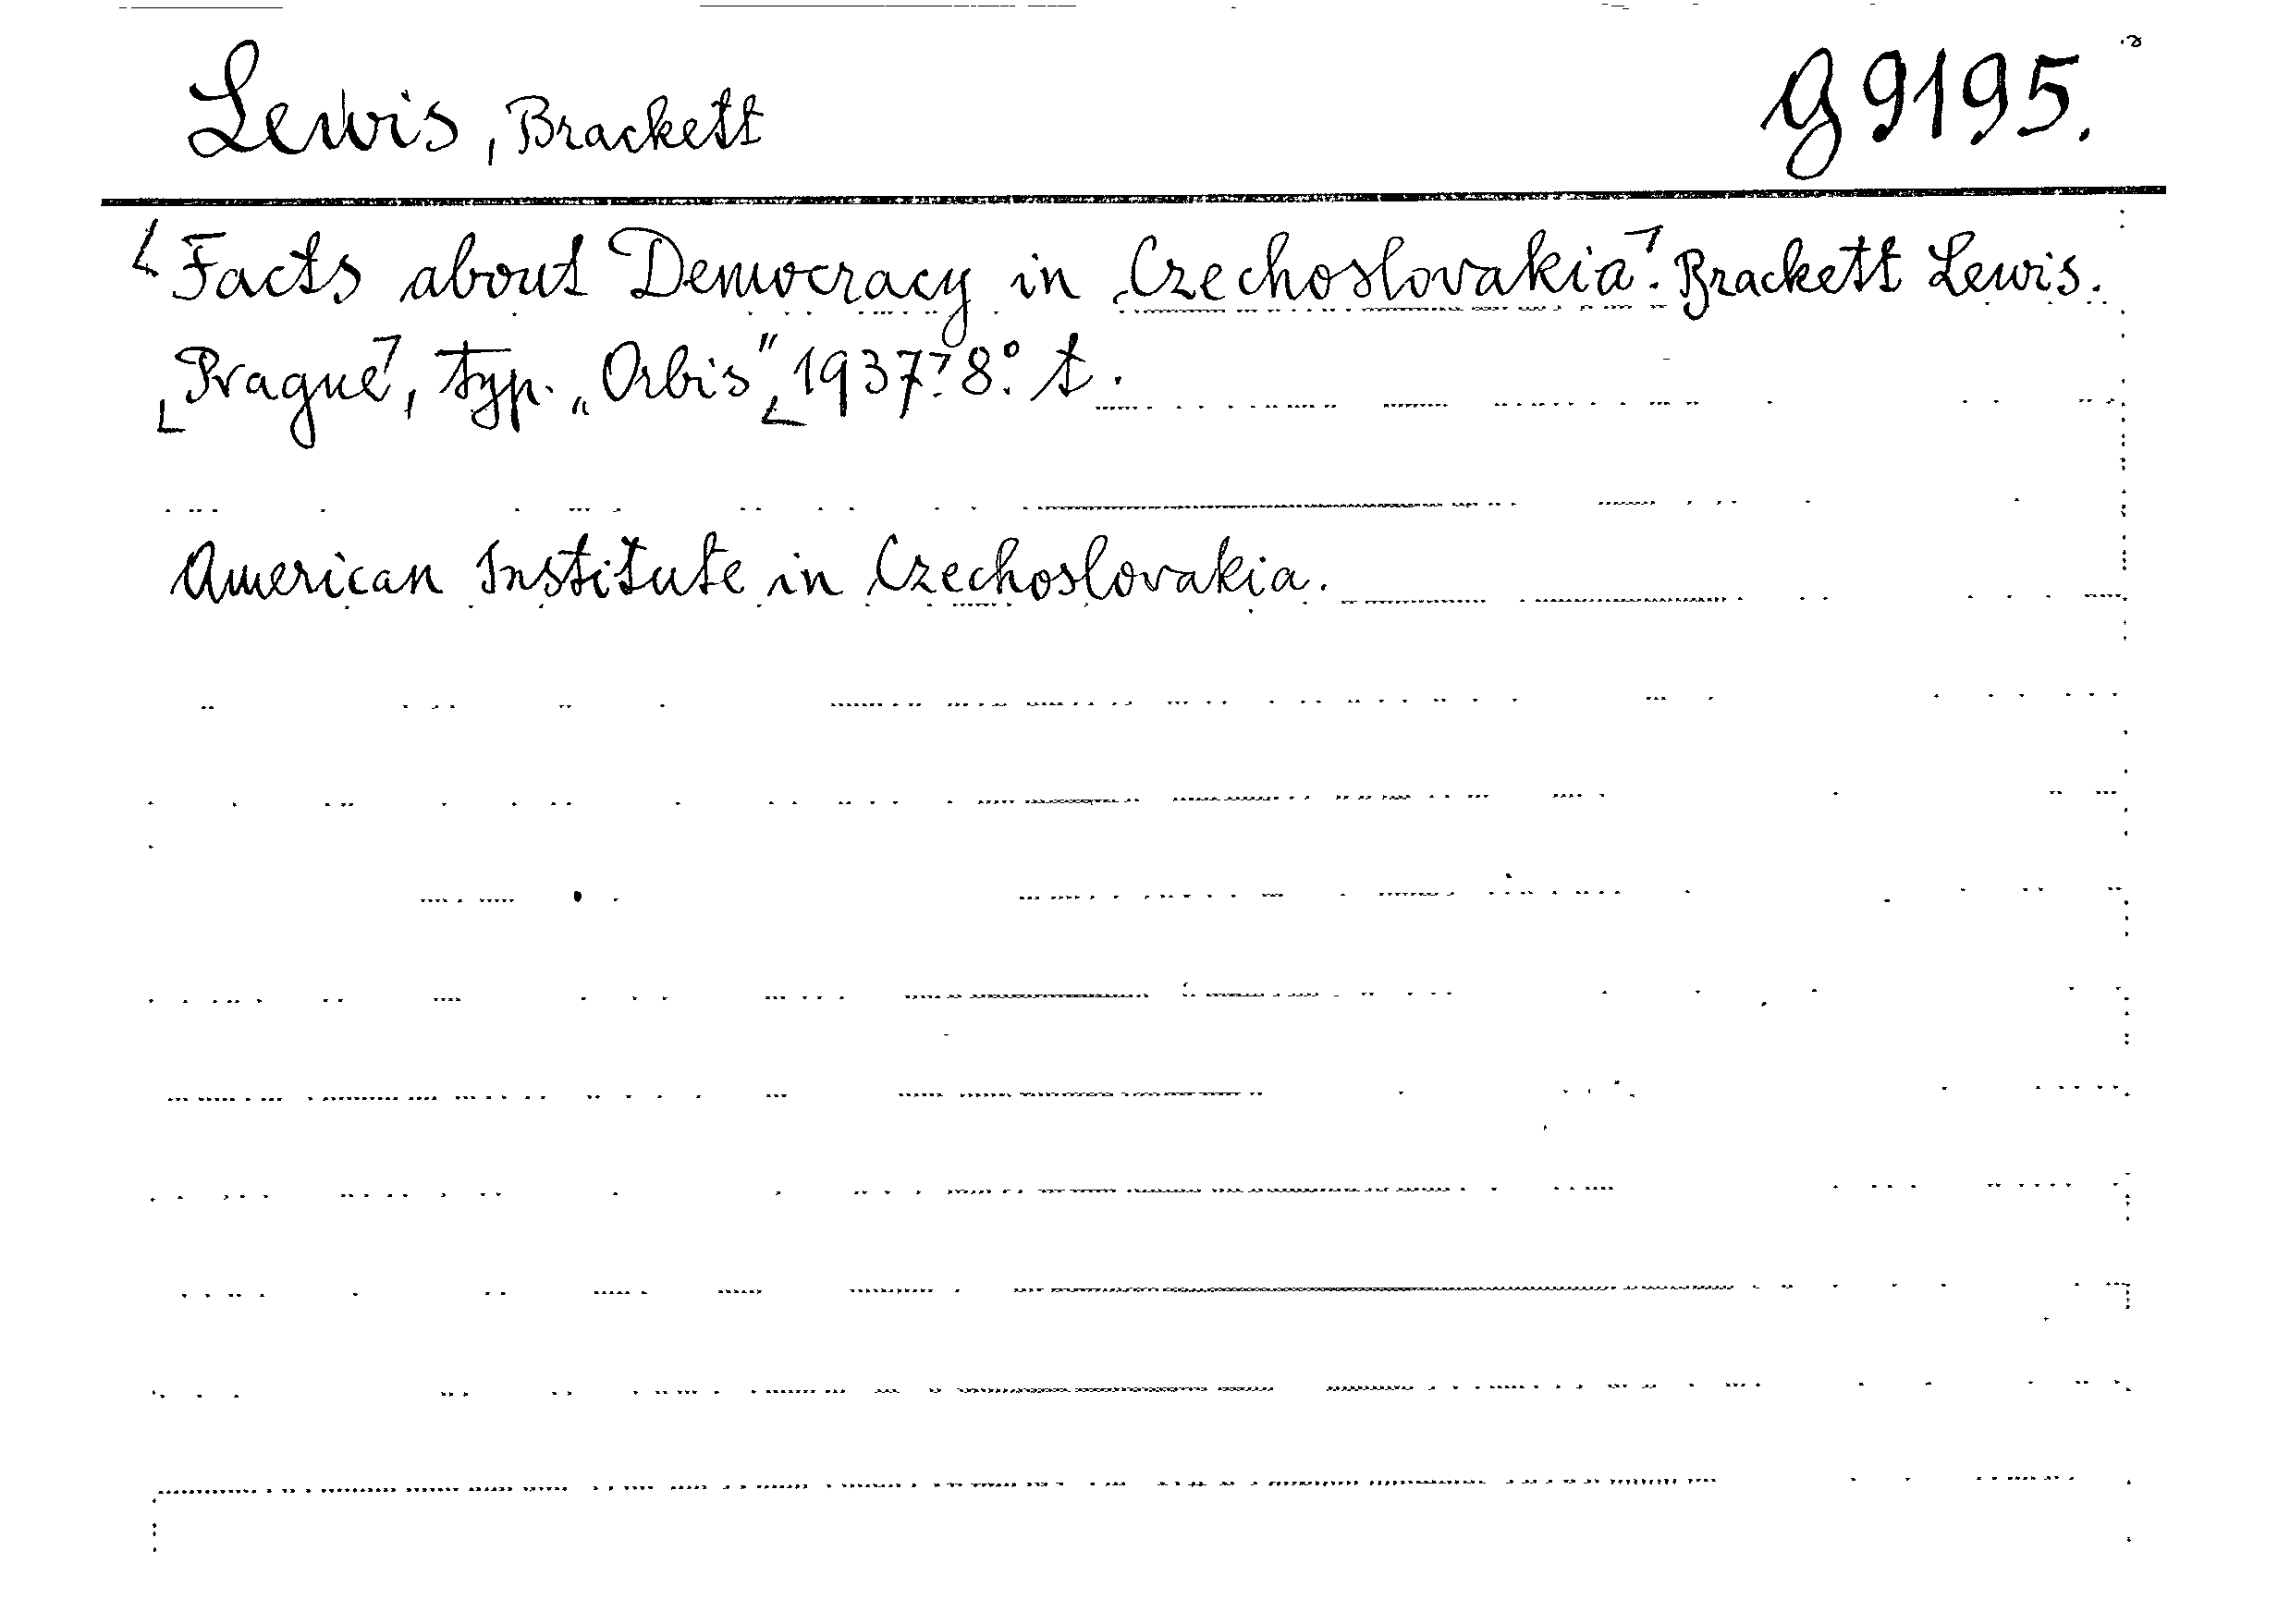 Lewis, Brackett
G 9195.
⌊Facts about Democracy in Czechoslovakia⌉. Brackett Lewis.
⌊Prague⌉, typ. „Orbis" ⌊1937⌉. 8°. t.
American Institute in Czechoslovakia.